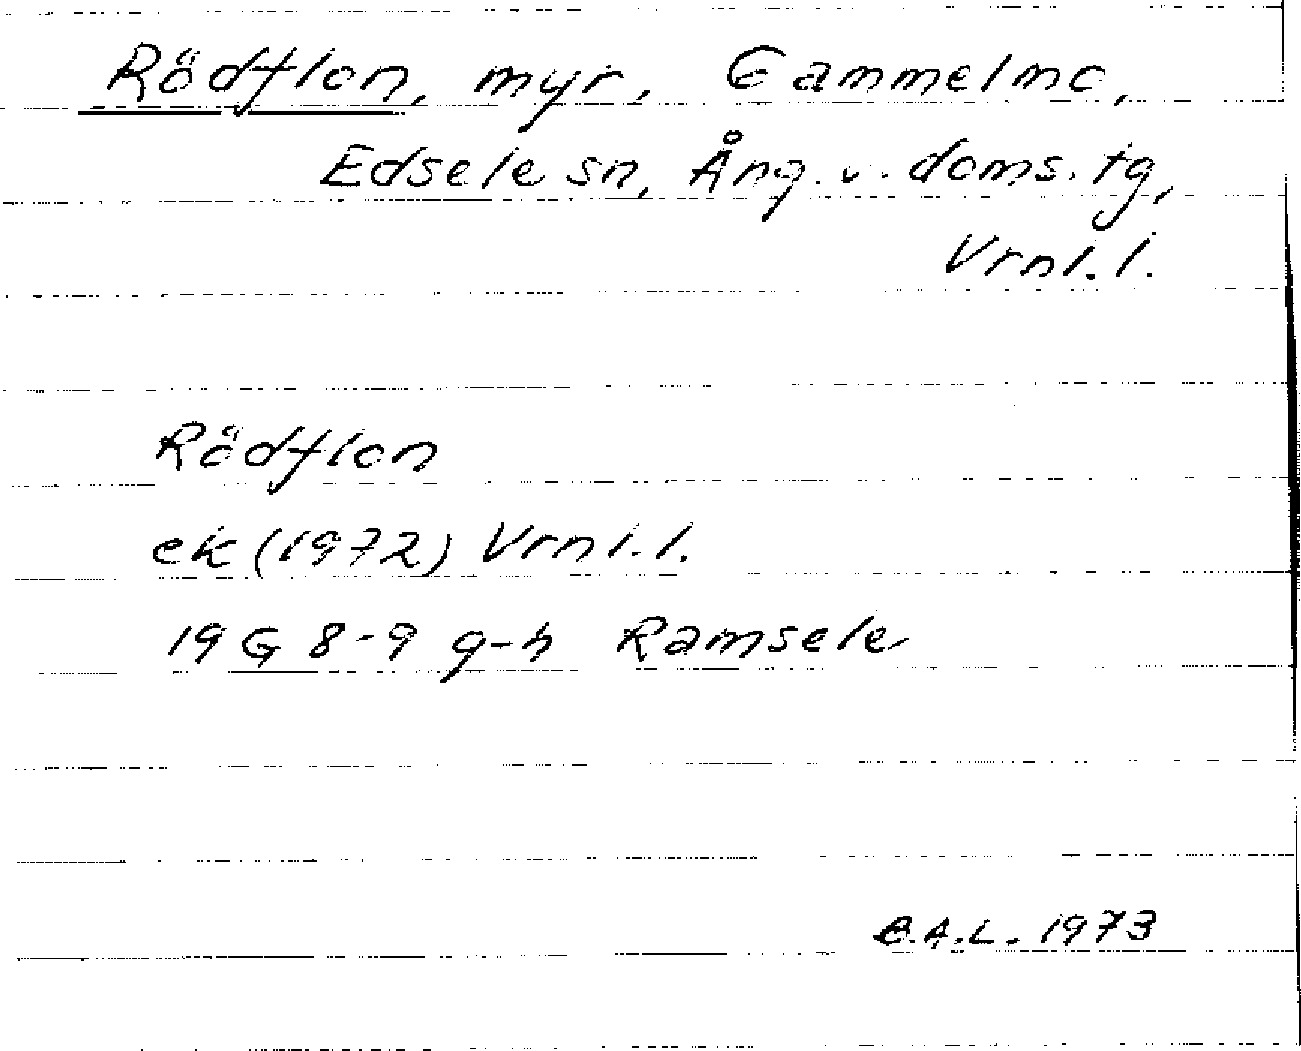 Rödflon, myr, Gammelmo,
Edsele sn, Ång. v. doms. tg,
Vrnl. l.
Rödflon
ek (1972) Vrnl. l.
19 G 8-9 g-h Ramsele
B.A.L. 1973